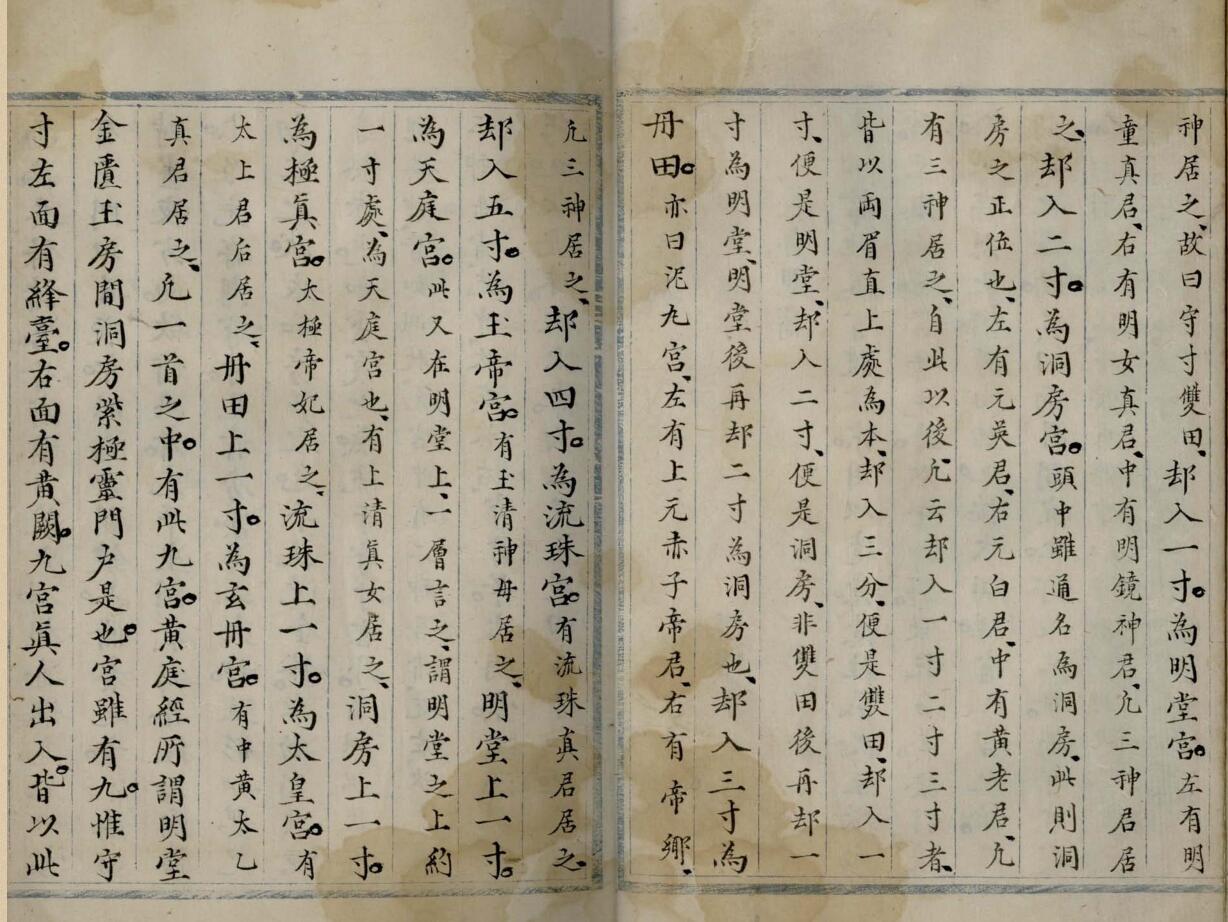 神居之、故曰守寸雙田、却入一寸。為明堂宮。左有明
童真君、右有明女真君、中有明鏡神君、凢三神居
之、却入二寸。為洞房宮。頭中雖通名為洞房、此則洞
房之正位也、左有元英君、右元白君、中有黄老君、凢
有三神居之、自此以後、凢云却入一寸二寸三寸者、
皆以両眉直上處為本、却入三分、便是雙田、却入一
寸、便是明堂、却入二寸、便是洞房、非雙田後再却一
寸為明堂、明堂後再却二寸為洞房也、却入三寸為
丹田。亦曰泥九宮、左有上元赤子帝君、右有帝鄉、
凢三神居之、却入四寸。為流珠宮。有流珠真君居之
却入五寸。為玉帝宮。有玉清神母居之、明堂上一寸。
為天庭宮。此又在明堂上、一層言之、謂明堂之上約
一寸處、為天庭宮也、有上清真女居之、洞房上一寸。
為極真宮。太極帝妃居之、流珠上一寸。為太皇宮。有
太上君后居之、丹田上一寸。為玄丹宮。有中黄太乙
真君居之、凢一首之中。有此九宮。黄庭經所謂明堂
金匱玉房間洞房紫極靈門户是也。宮雖有九。惟守
寸左面有絳臺。右面有黄闕。九宮真人出入。皆以此